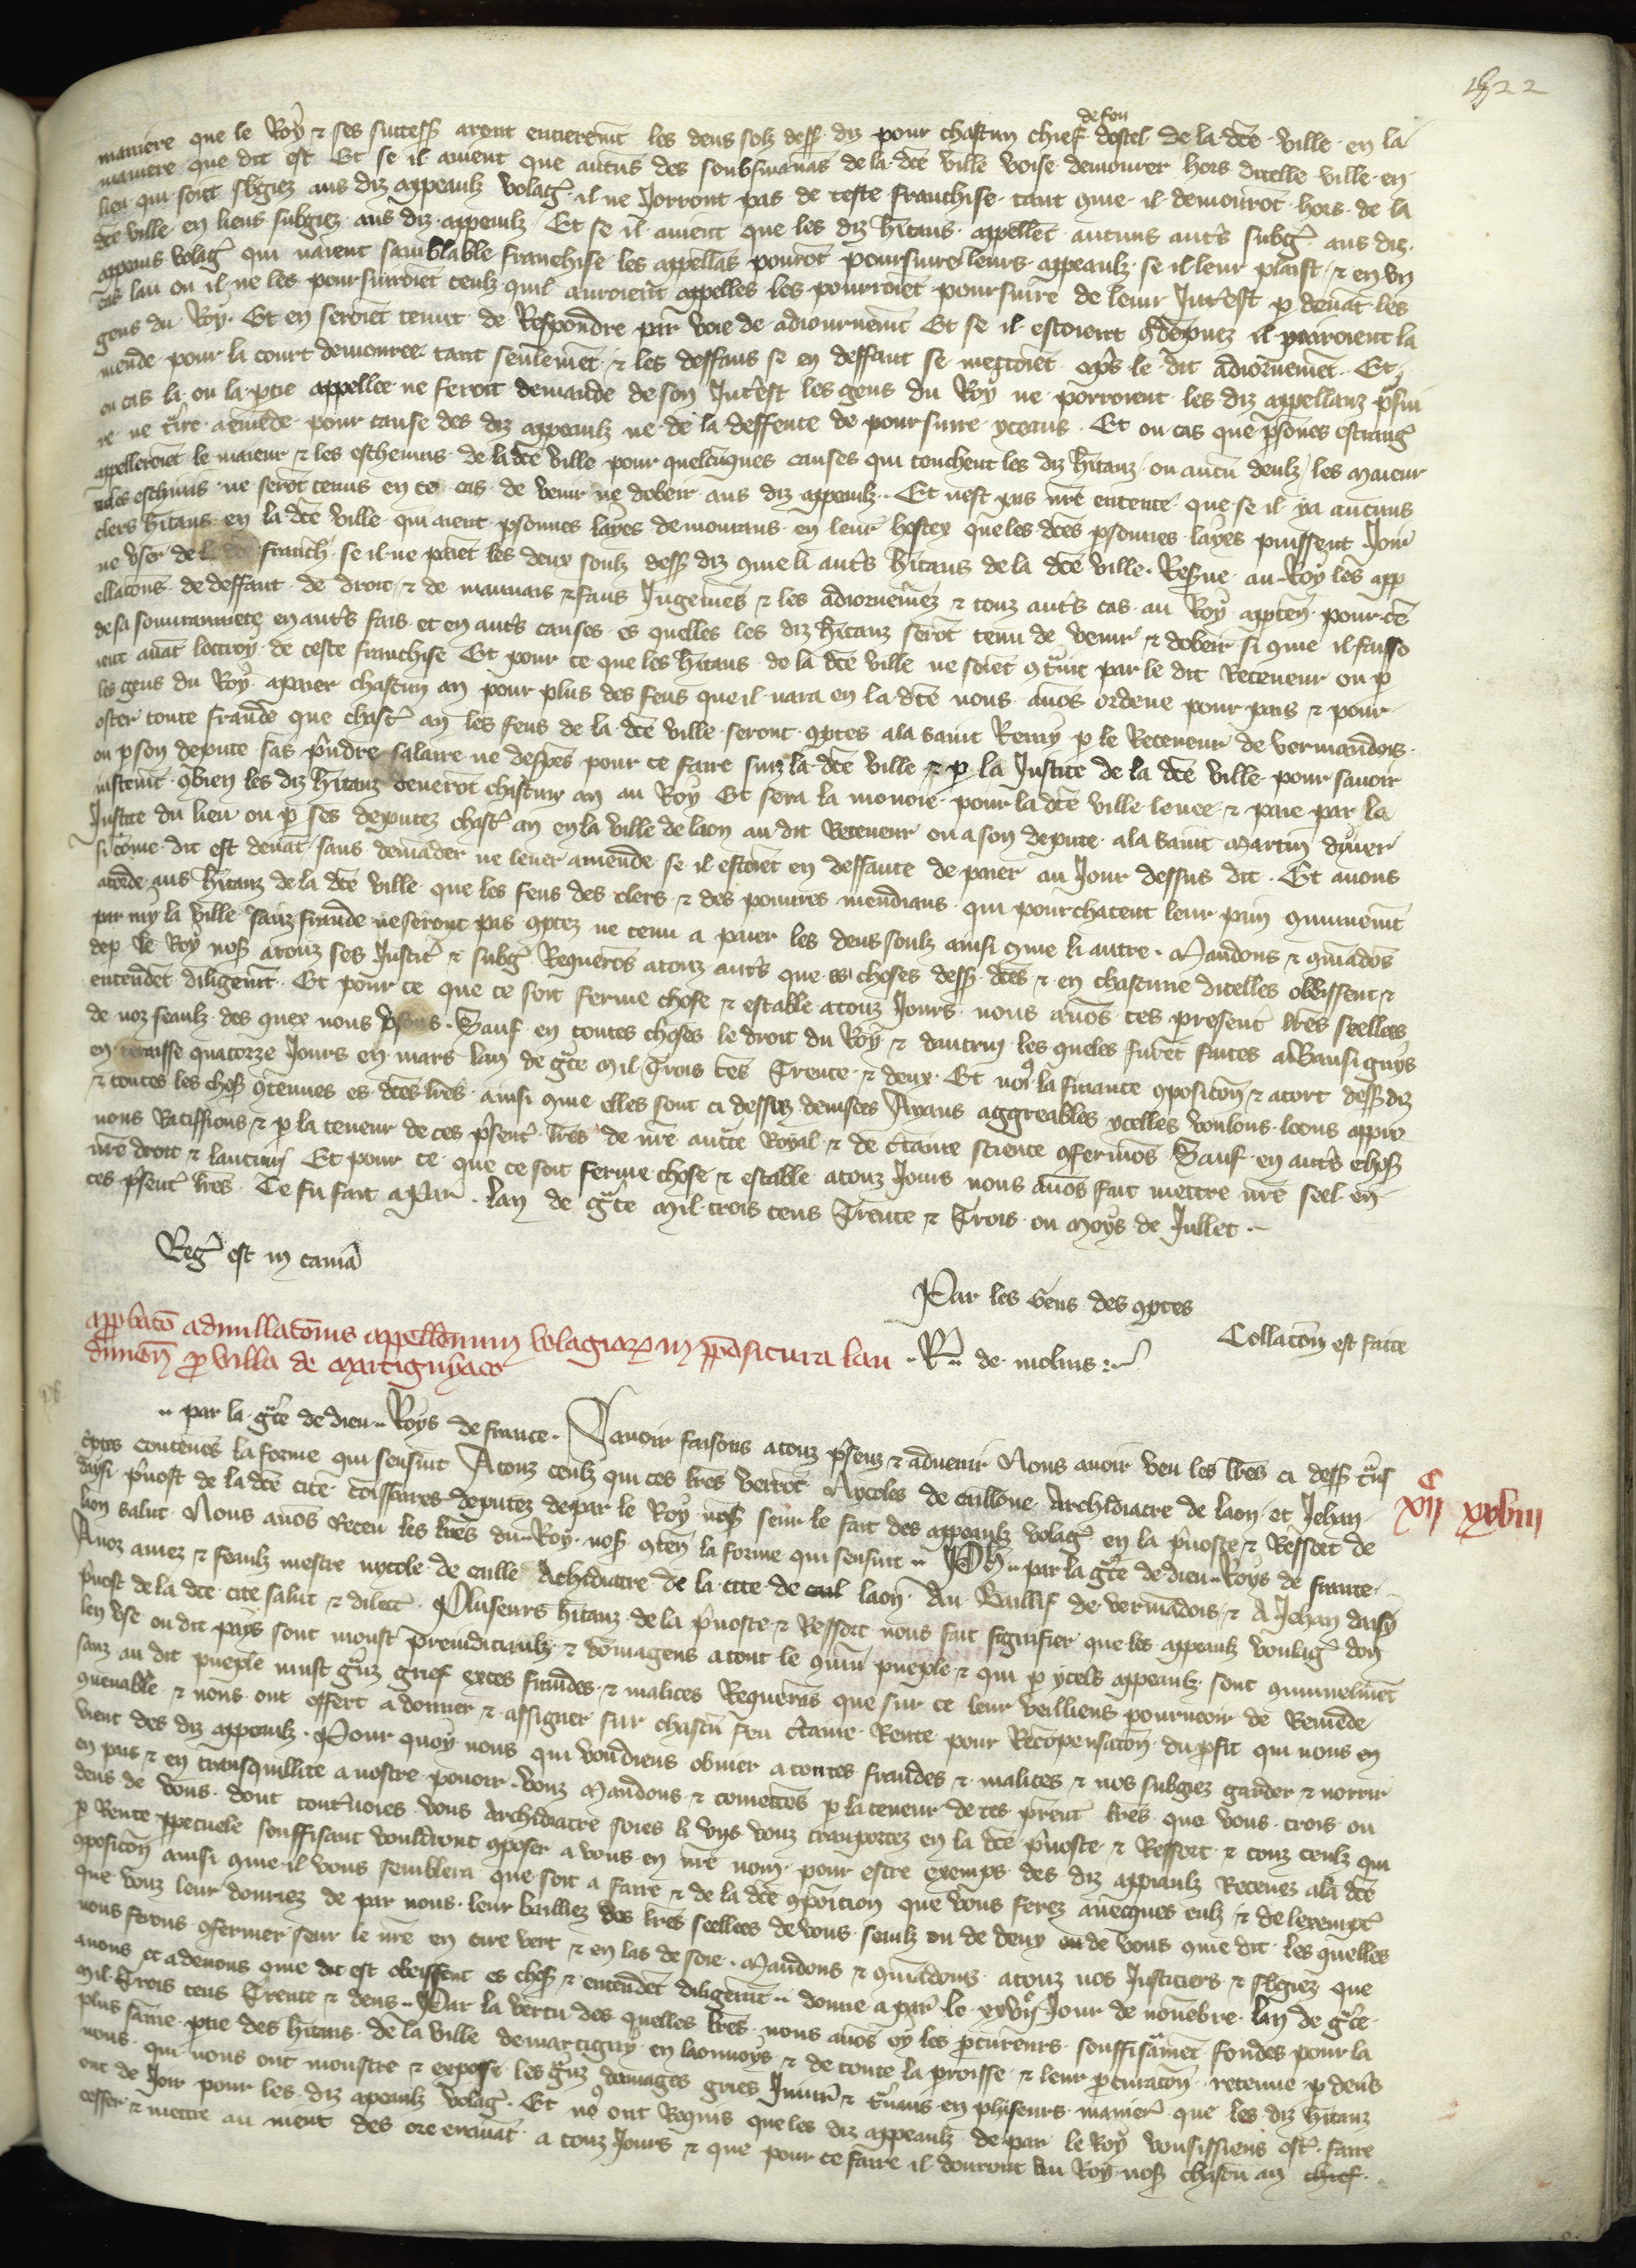 522
de feu
maniere que le Roy & ses success aront entierem̄t les deus solz dess diz pour chascun chief dostel de la dc̄e ville en la
maniere que dit est Et se il avient que aucuns des soubsmanās de la dc̄e ville voise demourer hors dicelle ville en
lieu qui soit sbgiez aus diz appeaulz volaḡ il ne Jorront pas de ceste franchise tant que il demourōt hors de la
dc̄e ville en lieus subgiez aus diz appeaulz Et se il avient que les diz h̄itans appellēt aucuns aut̄s subḡ aus diz
appeaus volaḡ qui naient samblable franchise les appellās pourōt poursuire leurs appeaulz se il leur plaist & en un
cas lau ou il ne les poursuiroiēt ceulz quil auroiēt appelles les pourroiēt poursuire de leur Int̄est p devāt les
gens du Roy Et en seroiēt tenut de Respondre par voie de adiournem̄t Et se il estoient 9dēpnez il paieroient la
mende pour la court demouree tant seulemēt & les deffaus se en deffaut se mectoiēt ap̄s le dit adiornemēt Et
ou cas la ou la ptie appellee ne feroit demande de son Int̄est les gens du Roy ne porroient les diz appellanz p̄sui
re ne t̄ire amēde pour cause des diz appeaulz ne de la deffence de poursuire yceaus Et ou cas que p̄sones estranḡ
apelleroiēt le maieur & les eschevins de la dc̄e ville pour quelcūques causes qui touchent les diz h̄itanz ou aucū deulz les maieur
& les eschevins ne serōt tenus en ce cas de venir ne dobeir aus diz appeaulz Et nest pas nr̄e entente que se il ya aucuns
clers h̄itans en la dc̄e ville qui aient psonnes layes demourans en leur hostex que les dc̄es psonnes layes puissent Joir
ne vser de l franch se il ne paiēt les deux soulz dess diz que li aut̄s h̄itans de la dc̄e ville Resue au Roy les app
ellacōns de deffaut de droit & de mauvais & faus Jugemēs & les adiornemēz & touz aut̄s cas au Roy apptēn pour cē
de sa souverainnete en aut̄s fais et en aut̄s causes es quelles les diz h̄itanz serōt tenu de venir & dobeir si que il faiso
ient avāt loctroy de ceste franchise Et pour ce que les h̄itans de la dc̄e ville ne soiēt 9t̄ait par le dit Receveur ou p
les gens du Roy apaier chascun an pour plus des feus que il nara en la dc̄e nous avōs ordene pour pais & pour
oster toute fraude que chasc̄ an les feus de la dc̄e ville seront 9ptes ala saint Remy p le Receveur de vermandois
ou p son depute sās p̄ndre salaire ne despēs pour ce faire sur la dc̄e ville & p la Justice de la dc̄e ville pour savoir
iustem̄t 9bien les diz h̄itanz deverōt chascun an au Roy Et sera la monoie pour la dc̄e ville levee & paie par la
Justice du lieu ou p ses deputez chasc̄ an en la ville de laon au dit Receveur ou a son depute ala saint Martin dyver
si c̄ome dit est devāt sans demāder ne lever amende se il estoiēt en deffaute de paier au Jour dessus dit Et avons
acorde aus h̄itanz de la dc̄e ville que les feus des clers & des pouvres mendians qui pourchacent leur pain 9munem̄t
par my la ville sanz fraude ne seront pas 9ptez ne tenu a paier les deus soulz ainsi que li autre Mandons & 9mādōs
dep le Roy nos̄ atouz ses Justic̄ & subḡ Requerōs atouz aut̄s que es choses dess dc̄es & en chascune dicelles obeissent &
entendēt diligem̄t Et pour ce que ce soit ferme chose & estable atouz Jours nous avōs ces present̄ lr̄es seellees
de noz seaulz des quex nous vsons Sauf en toutes choses le droit du Roy & dautruy les queles furēt faites a Bansignys
en teraisse quatorze Jours en mars lan de gr̄ce Mil Trois cēs Trente & deux Et no9 la finance 9posicōn & acort dess diz
& toutes les chos 9tenues es dc̄es lr̄es ainsi que elles sont ci dessus devisees Ayans aggreables ycelles voulons loons appro
nous Ratiffions & p la teneur de ces p̄sent̄ lr̄es de nr̄e auct̄e Royal & de c̄taine science 9fermōs Sauf en aut̄s chos
nr̄e droit & lautrui Et pour ce que ce soit ferme chose & estable atouz Jours nous avōs fait mettre nr̄e seel en
ces p̄sent̄ lr̄es Ce fu fait a Par̄ lan de gr̄ce mil trois cens Trente & Trois ou moys de Jullet
Reḡ est in camā
Par les Gens des 9ptes
Collacōn est faite
R de molins
approbacō adnullacōnis appellōnum volagiaꝝ in p̄positura lau
dunen̄ p villa de martigniaco
par la gr̄ce de dieu Roys de france Savoir faisons atouz p̄senz & advenir Nous avoir veu les lr̄es ci dess t̄ns
c̄ptes contenēs la forme qui sensuit Atouz ceulz qui ces lr̄es verrōt Nycoles de caillone Archidiacre de laon et Jehan
daisi p̄vost de la dc̄e cite cōissaires deputez depar le Roy nos̄ seur le fait des appeaulz volaḡ en la p̄voste & Ressort de
laon salut Nous avōs Receu les lr̄es du Roy nos̄ 9ten̄ la forme qui sensuit Ph̄ par la gr̄ce de dieu Roys de france
Anoz amez & feaulz mestre nycole de caille Achidiacre de la cite de laon Au Baillif de vermādois & A Jehan daisy
p̄vost de la dc̄e cite salut & dilect̄ Pluseurs h̄itanz de la p̄voste & Ressort nous fait signifier que les appeaulz voulaḡ don
len vse ou dit pays sont moust preiudiciaulz & dōmageus atout le 9mun pueple & qui p ycels appeaulz sont 9munelmēt
sanz au dit pueple must gr̄nz grief exces fraudes & malices Requerās que sur ce leur veilliens pourveoir de Remede
9venable & nous ont offert a donner & assigner sur chascū feu c̄taine Rente pour Recōpensacōn du p̄fit qui nous en
vient des diz appeaulz Pour quoy nous qui voudriens obvier a toutes fraudes & malices & nos subgiez garder & norrir
en pais & en transquillite a nostre povoir vous Mandons & comectōs p la teneur de ces p̄sent̄ lr̄es que vous trois ou
deus de vous dont toutevoies vous Archidiacre soies li vns vouz transportez en la dc̄e p̄voste & Ressort & touz ceulz qui
p Rente ppetuele souffisant vouldront 9poser a vous en nr̄e nom pour estre exemps des diz appeaulz Recevez ala dc̄e
9posicōn ainsi que il vous semblera que soit a faire & de la dc̄e 9posicion que vous ferez avecques eulz & de lexempc̄
que vouz leur donriez de par nous leur bailliez vos lr̄es seellees de vous seulz ou de deux de vous que dit les quelles
nous ferons 9fermer seur le nr̄e en cire vert & en las de soie Mandons & 9mādons atouz nos Justiciers & sbgiez que
avous & a deuous que dit est obeissent es chos & entendēt diligem̄t donne a par̄ le xxvij Jour de novēbre lan de gr̄ce
Mil Trois cens Trente & deus Par la vertu des quelles lr̄es nous avōs oy les p̄cureurs souffisāmēt fondes pour la
plus saine ptie des h̄itans de la ville de martigny en laonnoys & de toute la p̄roisse & leur p̄curacōn retenue p devs̄
nous qui nous ont monstre & expose les gr̄nz domages griés Jniur̄ & t̄vais en pluseurs manier̄ que les diz h̄itanz
ont de Joir pour les diz apeaulz volaḡ Et no9 ont Requis que les diz appeaulz de par le Roy vousissiens ost̄ faire
cesser & mettre au nient des ore en avāt a touz Jours & que pour ce faire il donront au Roy nos̄ chascū an chief
c
xii xxviii